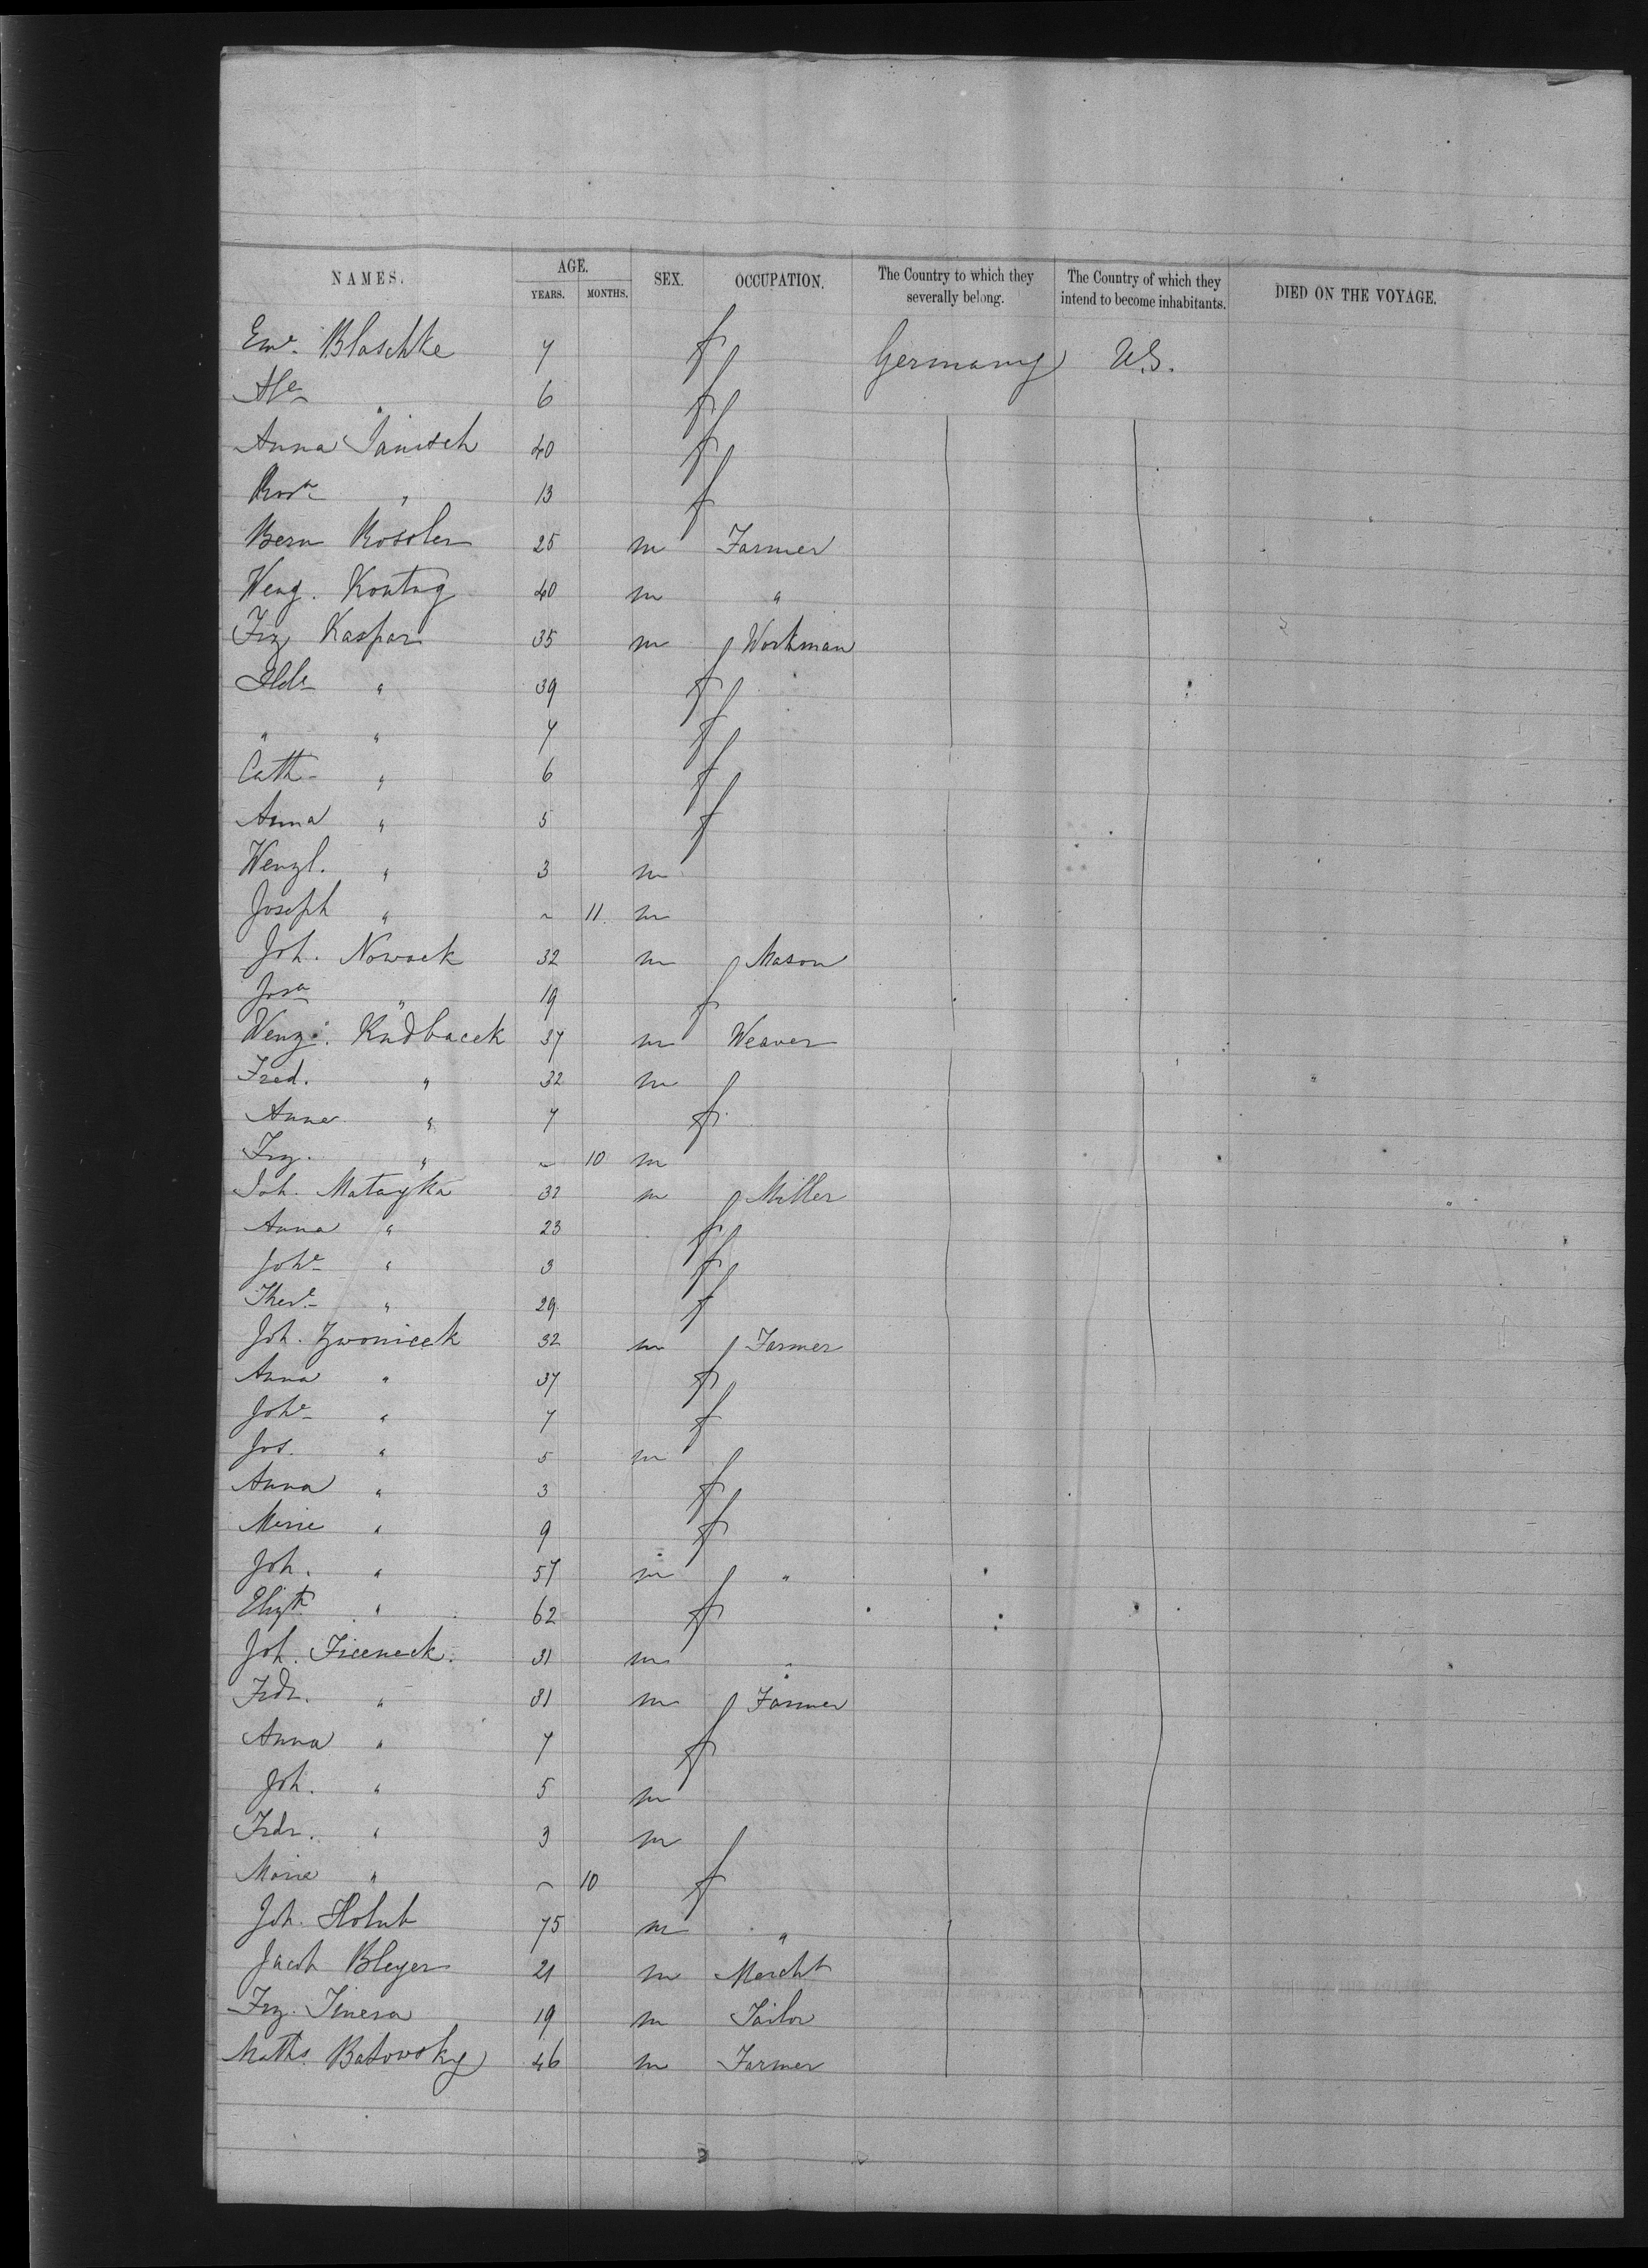 NAMES. AGE. SEX. OCCUPATION. The Country to which they severally belong. The Country of which they intend to become inhabitants. DIED ON THE VOYAGE.
YEARS. MONTHS.
Eme. Blaschke 7 f Germany U.S.
" 6 f
Anna Janisch 40 f
Rosa " 13 f
Bern Rossler 25 m Farmer
Wenz. Kontny 40 m "
Frz Kaspar 35 m Workman
" 39 f
" " 7 f
Cath " 6 f
Anna " 5 f
Wenzl. " 3 m
Joseph " ~ 11 m
Joh. Nowack 32 m Mason
Josa " 19 f
Wenz. Kudbacek 37 m Weaver
Fred. " 32 m
Anna " 7 f
Frz. " ~ 10 m
Joh. Matayka 32 m Miller
Anna " 23 f
Johe " 3 f
There " 29 f
Joh. Zwonicek 32 m Farmer
Anna " 37 f
Johe " 7 f
Jos. " 5 m
Anna " 3 f
Marie " 9 f
Joh. " 57 m "
Elizth " 62 f
Joh. Ficeneck 31 m "
Frdr. " 31 m Farmer
Anna " 7 f
Joh. " 5 m
Frdr. " 3 m
Marie " ~ 10 f
Joh. Holub 75 m "
Jacob Bleyer 21 m Mercht
Frz. Jinera 19 m Tailor
Matths. Batovsky 46 m Farmer